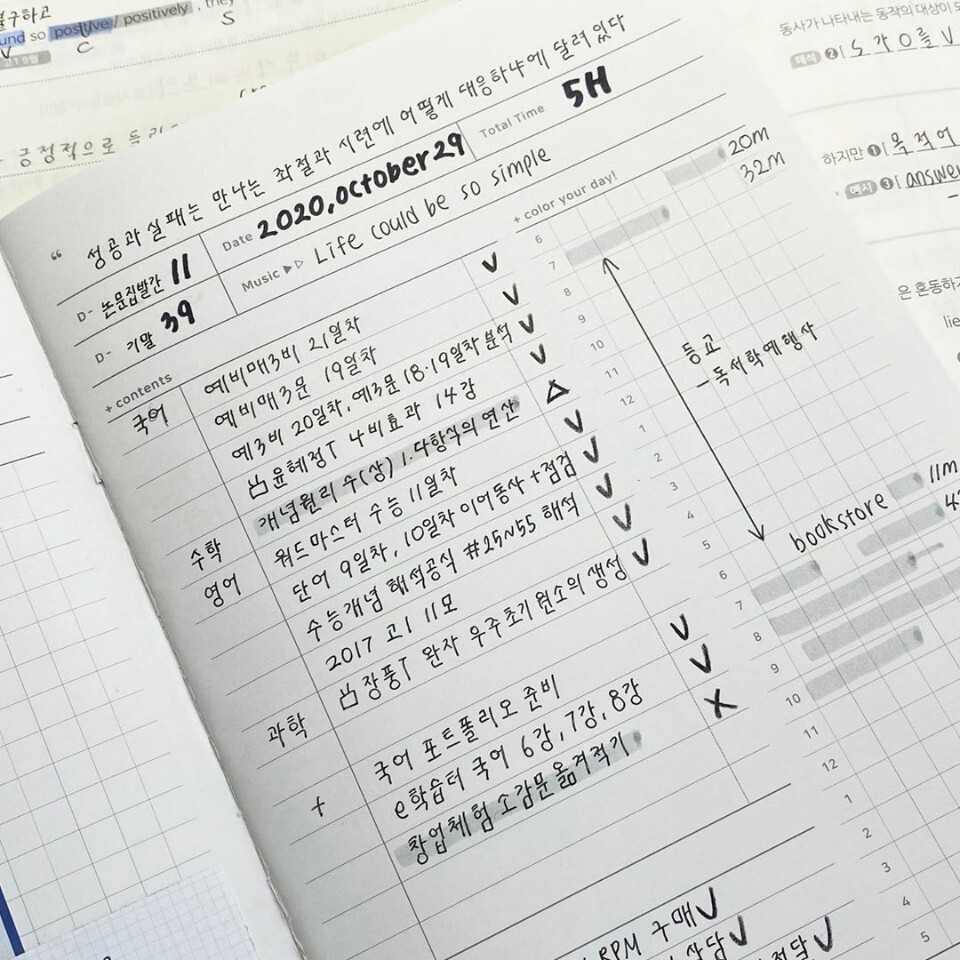 불구하고
und so positive / positively , they
V C S
고1 9월
긍정적으로 들리
“ 성공과 실패는 만나는 좌절과 시련에 어떻게 대응하냐에 달려있다
D- 논문집발간 11
Date 2020, october 29
Total Time 5H
D- 기말 39
Music ▶▷ Life could be so simple
+ contents
+ color your day!
국어 예비매3비 21일차 V
예비매3문 19일차 V
예3비 20일차, 예3문 18·19일차 분석 V
윤혜정T 나비효과 14강 V
수학 개념원리 수(상) 1. 다항식의 연산 △
영어 워드마스터 수능 11일차 V
단어 9일차, 10일차 이어동사 + 점검 V
수능개념 해석공식 #25~55 해석 V
2017 고1 11모 V
과학 장풍T 완자 우주초기원소의 생성 V
+ 국어 포트폴리오 준비 V
e학습터 국어 6강, 7강, 8강 V
창업체험 소감문 옮겨적기 X
RPM 구매 V
상담 V
전달 V
20m
6 32m
7
8
9
10
11
12
1
2
3
4
5
6
7
8
9
10
11
12
1
2
3
4
5
등교
- 독서학예행사
bookstore
11m
동사가 나타내는 동작의 대상이 되
해석 ❷
하지만 ❶ 목적어
예시 ❸ answer
은 혼동하기
lie